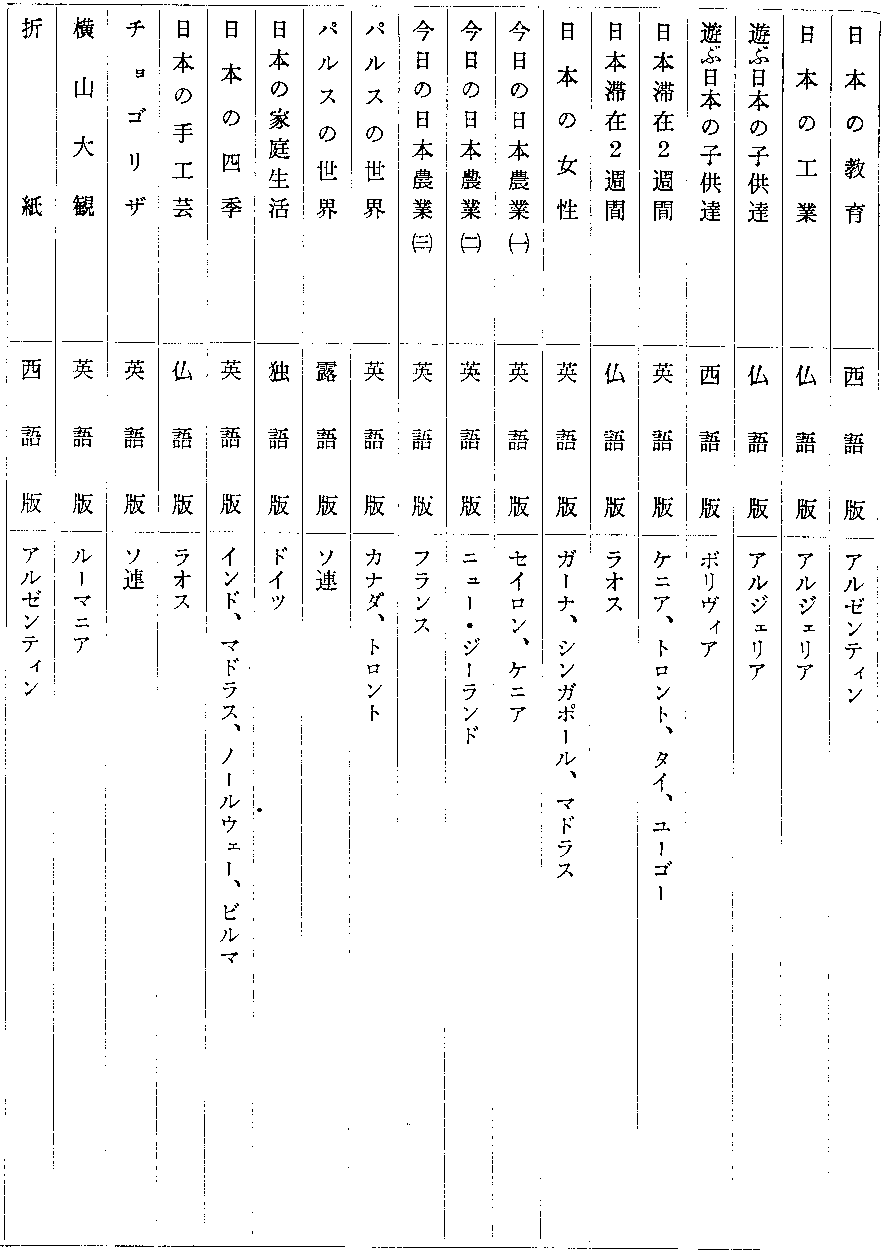 日本の教育 西語版 アルゼンティン
日本の工業 仏語版 アルジェリア
遊ぶ日本の子供達 仏語版 アルジェリア
遊ぶ日本の子供達 西語版 ボリヴィア
日本滞在2週間 英語版 ケニア、トロント、タイ、ユーゴー
日本滞在2週間 仏語版 ラオス
日本の女性 英語版 ガーナ、シンガポール、マドラス
今日の日本農業㈠ 英語版 セイロン、ケニア
今日の日本農業㈡ 英語版 ニュー・ジーランド
今日の日本農業㈢ 英語版 フランス
パルスの世界 英語版 カナダ、トロント
パルスの世界 露語版 ソ連
日本の家庭生活 独語版 ドイツ
日本の四季 英語版 インド、マドラス、ノールウェー、ビルマ
日本の手工芸 仏語版 ラオス
チョゴリザ 英語版 ソ連
横山大観 英語版 ルーマニア
折紙 西語版 アルゼンティン